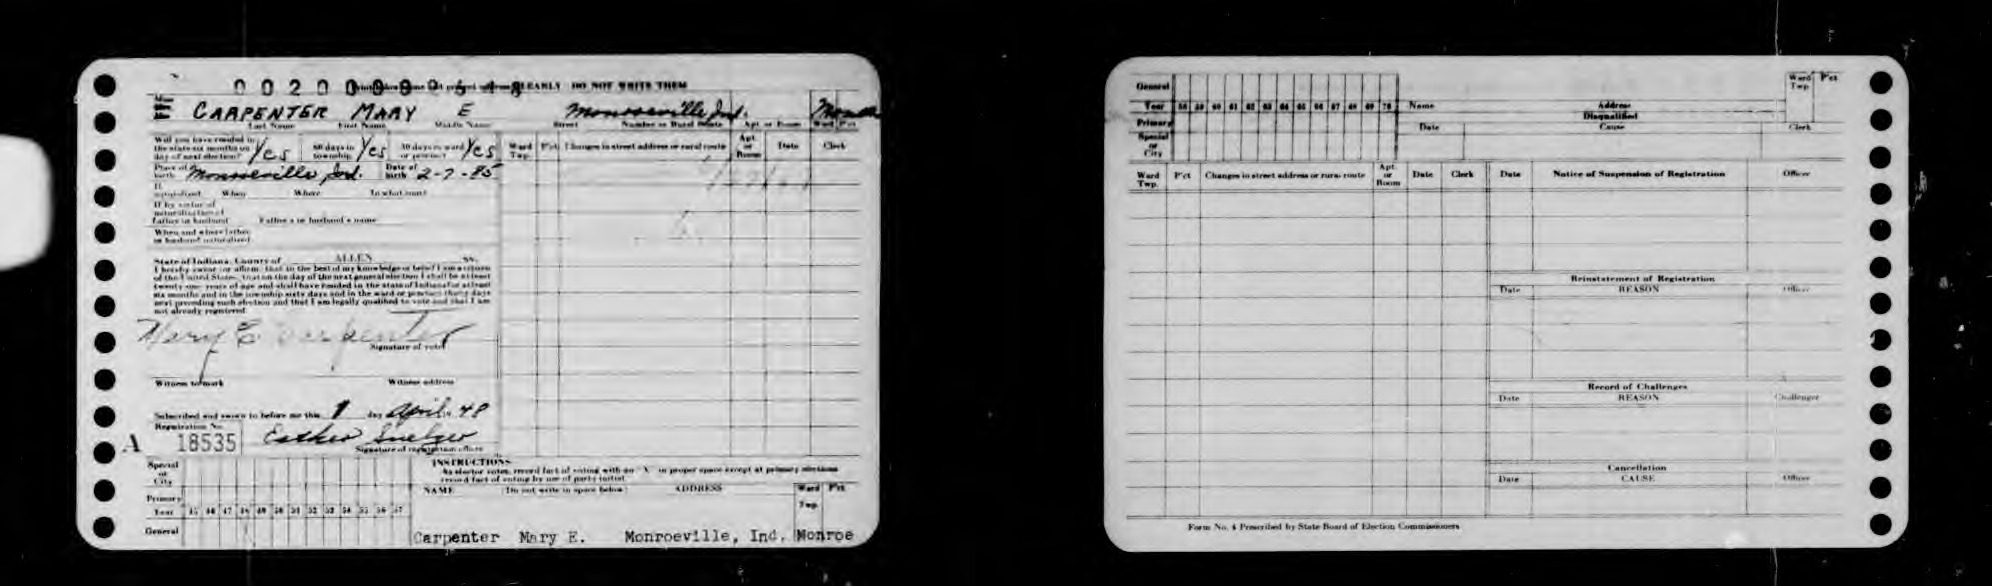 CLEARLY DO NOT WRITE THEM
CARPENTER MARY E Monroeville Ind. Monroe
Last Name First Name Middle Name Street Number or Rural Route Apt or Room Ward P'ct
Will you have resided in the state six months on day of next election? Yes 60 days in township Yes 30 days in ward or precinct Yes
Ward Twp. P'ct Changes in street address or rural route Apt. or Room Date Clerk
Place of birth Monroeville Ind. Date of birth 2-7-85
If naturalized When Where In what court
If by virtue of naturalization of Father or husband Father's or husband's name
When and where father or husband naturalized
State of Indiana, County of ALLEN ss.
I hereby swear (or affirm) that to the best of my knowledge or belief I am a citizen
of the United States, that on the day of the next general election I shall be at least
twenty-one years of age and shall have resided in the state of Indiana for at least
six months and in the township sixty days and in the ward or precinct thirty days
next preceding such election and that I am legally qualified to vote and that I am
not already registered
Mary E Carpenter
Signature of voter
Witness to mark Witness address
Subscribed and sworn to before me this 9 day April 48
Registration No.
A 18535 Esther
Signature of registration officer
Special or City
Primary
Year 45 46 47 48 49 50 51 52 53 54 55 56 57
General
INSTRUCTIONS
As elector votes, record fact of voting with an "X" in proper space except at primary elections
record fact of voting by use of party initial
NAME (Do not write in space below) ADDRESS Ward Twp. P'ct
Carpenter Mary E. Monroeville, Ind. Monroe
General
Year 58 59 60 61 62 63 64 65 66 67 68 69 70
Primary
Special or City
Name Address Ward Twp. P'ct
Disqualified
Date Cause Clerk
Ward Twp. P'ct Changes in street address or rural route Apt. or Room Date Clerk
Date Notice of Suspension of Registration Officer
Reinstatement of Registration
Date REASON Officer
Record of Challenges
Date REASON Challenger
Cancellation
Date CAUSE Officer
Form No. 4 Prescribed by State Board of Election Commissioners